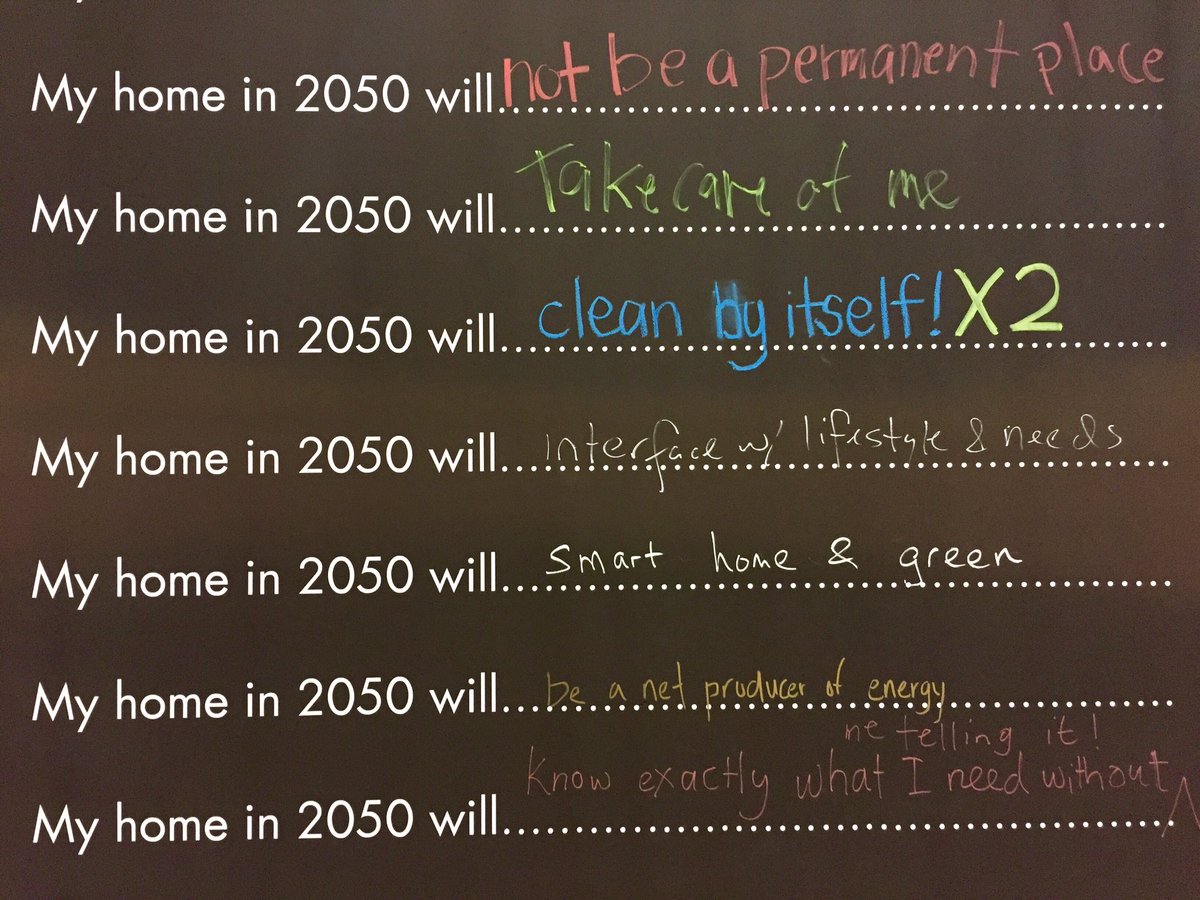 My home in 2050 will...not be a permanent place
My home in 2050 will...Take care of me
My home in 2050 will...clean by itself! X2
My home in 2050 will...interface w/ lifestyle & needs
My home in 2050 will...smart home & green
My home in 2050 will...be a net producer of energy
me telling it!
My home in 2050 will...Know exactly what I need without